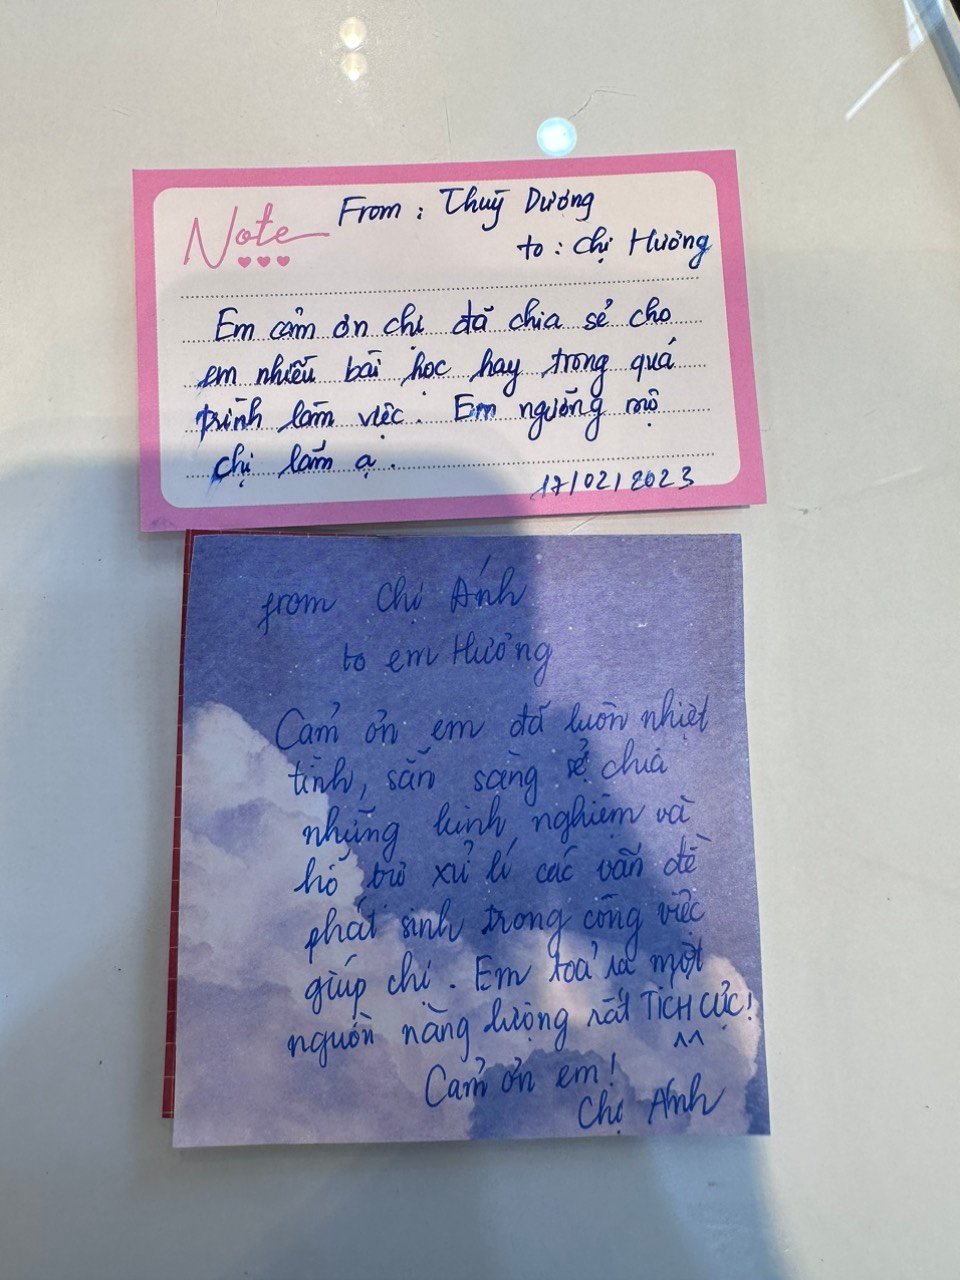 Note
From : Thuỳ Dương
to : chị Hương
Em cảm ơn chị đã chia sẻ cho
em nhiều bài học hay trong quá
trình làm việc. Em ngưỡng mộ
chị lắm ạ.
17/02/2023
from Chị Ánh
to em Hương
Cảm ơn em đã luôn nhiệt
tình, sẵn sàng sẻ chia
những kinh nghiệm và
hỗ trợ xử lí các vấn đề
phát sinh trong công việc
giúp chị. Em toả ra một
nguồn năng lượng rất TÍCH CỰC!
^^
Cảm ơn em!
Chị Ánh